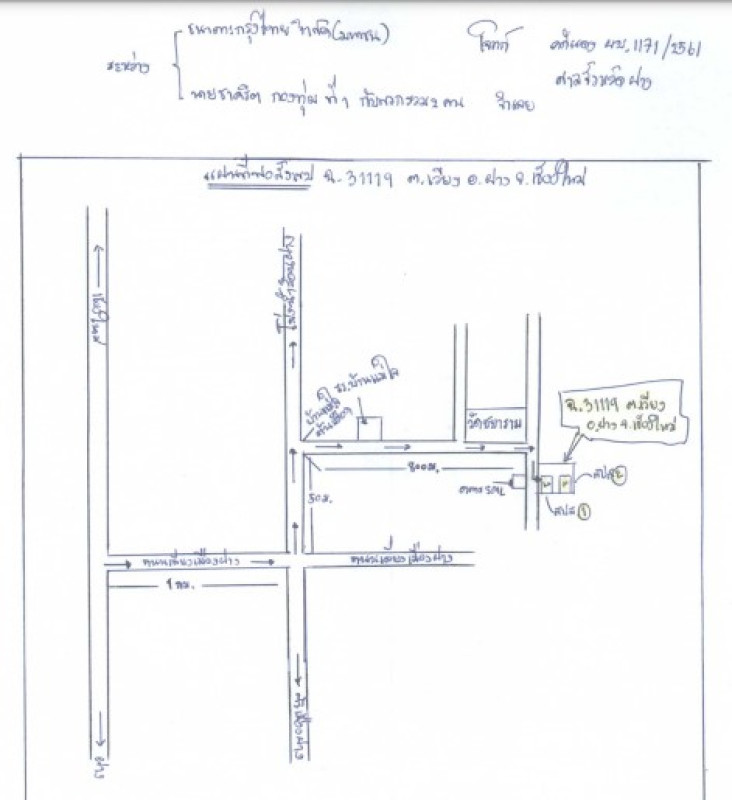 ธนาคารกรุงไทย จำกัด(มหาชน) โจทก์ คดีแดง ผบ.1171/2561
ระหว่าง ศาลจังหวัดฝาง
นายชาคริต กองทุ่ม ที่ 1 กับพวกรวม 2 คน จำเลย
แผนที่พอสังเขป ฉ.31119 ต.เวียง อ.ฝาง จ.เชียงใหม่
เชียงใหม่
โป่งน้ำร้อนฝาง
รร.บ้านแม่ใจ
วัดชยาราม
ฉ.31119 ต.เวียง
อ.ฝาง จ.เชียงใหม่
800 ม.
50 ม.
สปส 2
สปส 1
ถนนเลี่ยงเมืองฝาง
ถนนเลี่ยงเมืองฝาง
1 กม.
ตัวเมืองฝาง
ฝาง